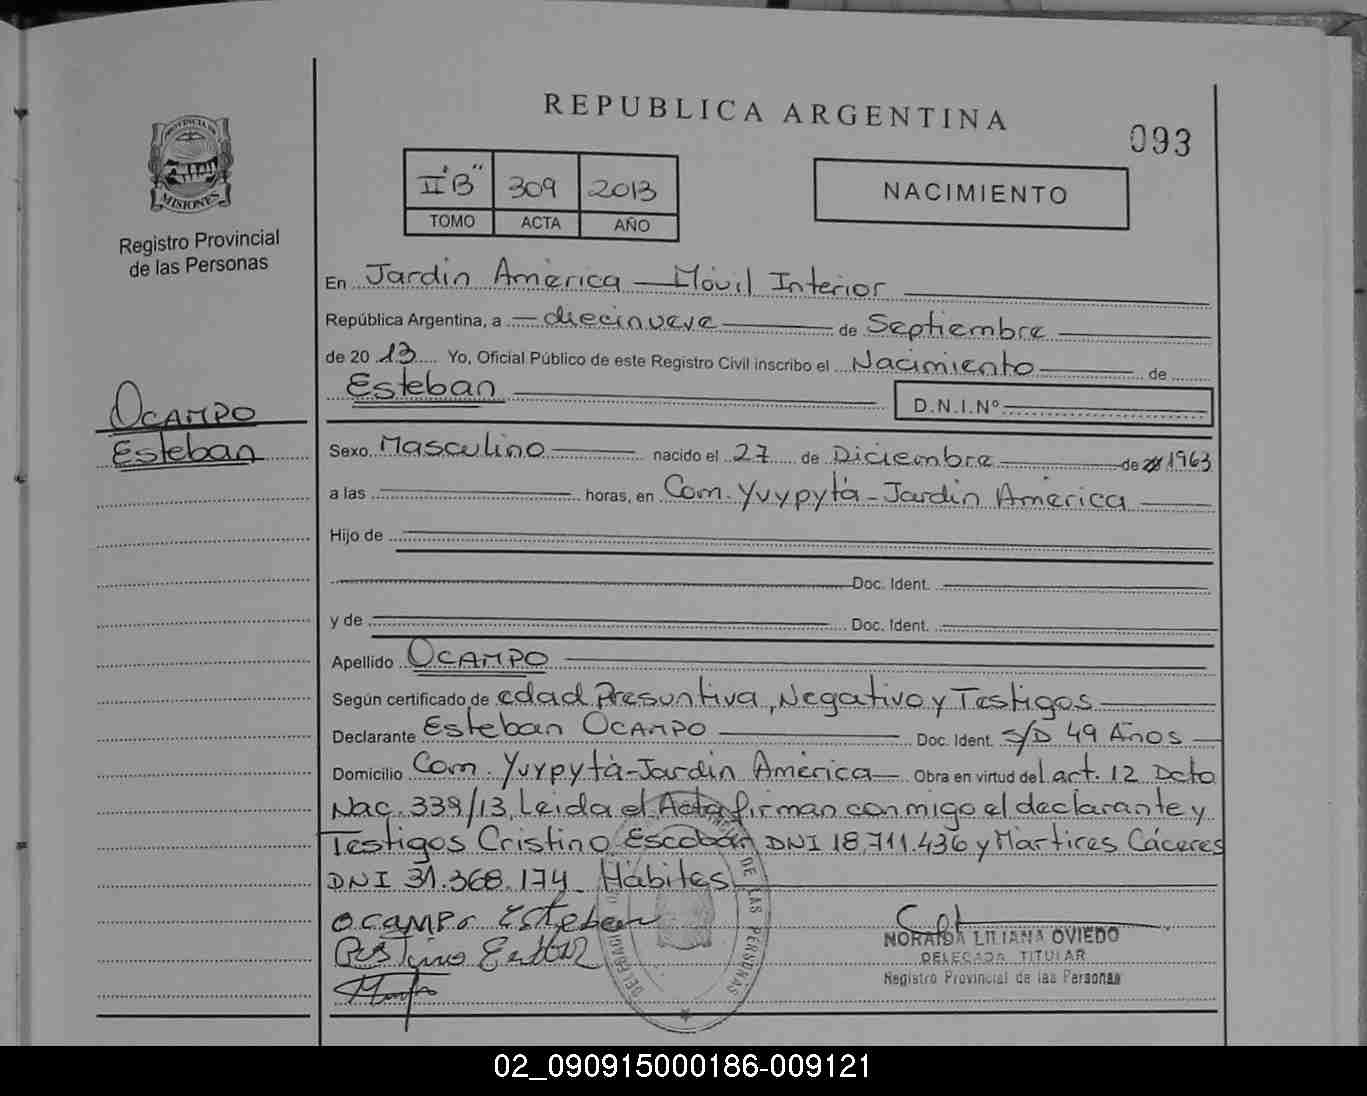 REPUBLICA ARGENTINA
093
PROVINCIA DE
MISIONES
Registro Provincial
de las Personas
II "B" 309 2013
TOMO ACTA AÑO
NACIMIENTO
En Jardin América — Móvil Interior
República Argentina, a — diecinueve — de Septiembre
de 20 13 Yo, Oficial Público de este Registro Civil inscribo el Nacimiento — de
Esteban
D.N.I.Nº
Ocampo
Esteban
Sexo Masculino — nacido el 27 de Diciembre — de 1963
a las — horas, en Com. Yvypytá - Jardin América
Hijo de
Doc. Ident.
y de Doc. Ident.
Apellido Ocampo
Según certificado de edad Presuntiva, Negativo y Testigos
Declarante Esteban Ocampo — Doc. Ident. S/D 49 Años
Domicilio Com. Yvypytá - Jardin América — Obra en virtud del art. 12 Dcto
Nac. 339/13, Leida el Acta firman conmigo el declarante y
Testigos Cristino Escobar DNI 18.711.436 y Martires Cáceres
DNI 31.368.174 Hábiles
Ocampo Esteban
NORAIDA LILIANA OVIEDO
DELEGADA TITULAR
Registro Provincial de las Personas
DE LAS PERSONAS
02_090915000186-009121